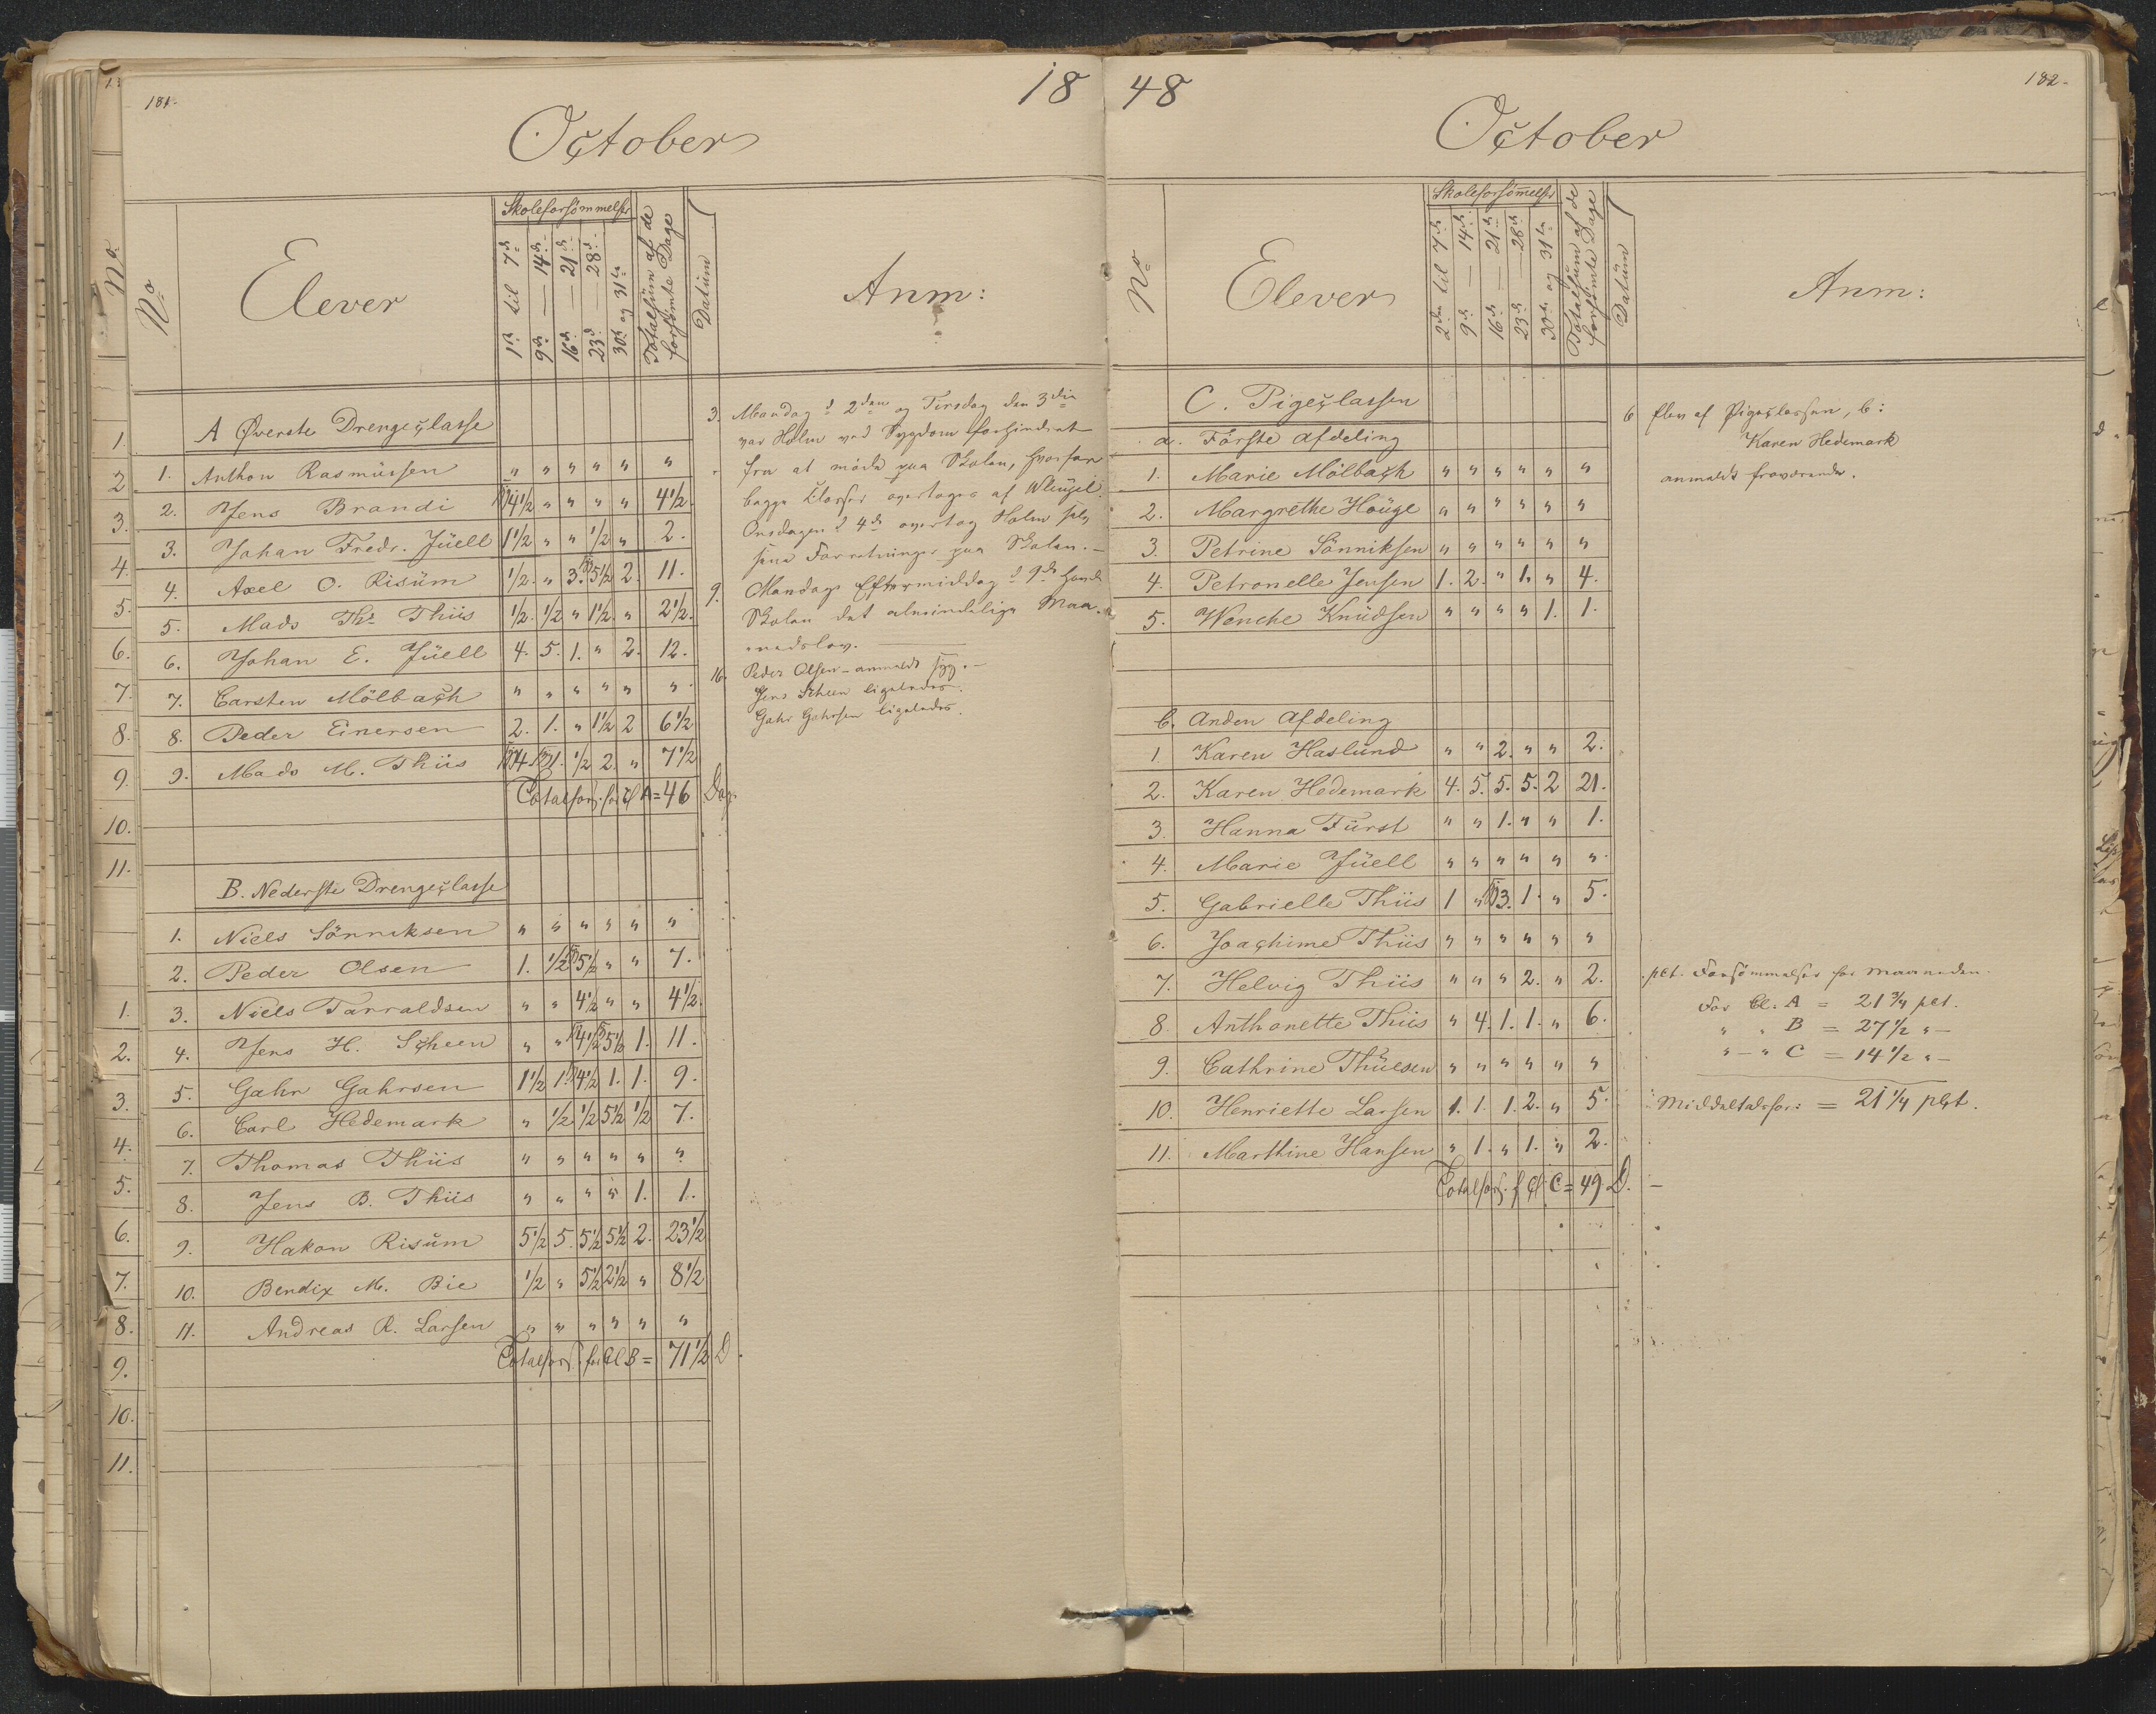 181.
18
October
No
Elever
Skoleforsömmelser
1ste til 7de
9de — 14de
16de — 21de
23de — 28de
30te og 31te
Totalsum af de forsömte Dage
Datum
Anm:
A Øverste Drengeclasse
1. Anthon Rasmüssen " " " " " "
2. Jens Brandi 4½ " " " " 4½.
3. Johan Fredr. Jüell 1½ " " ½ " 2.
4. Axel O. Risüm ½. " 3. 5½ 2 11.
5. Mads Thr Thiis ½. ½ " 1½. " 2½.
6. Johan E. Jüell 4. 5. 1. " 2. 12.
7. Carsten Mölbach " " " " " "
8. Peder Einersen 2. 1. " 1½ 2 6½
9. Mads M. Thiis 4. 1. ½ 2. " 7½
Totalfors. for Cl A = 46 Dag.
B. Nederste Drengeclasse
1. Niels Sönniksen " " " " " "
2. Peder Olsen 1. ½ 5½ " " 7.
3. Niels Tarraldsen " " 4½ " " 4½.
4. Jens H. Scheen " " 4½ 5½ 1. 11.
5. Gahr Gahrsen 1½ 1. 4½ 1. 1. 9.
6. Carl Hedemark " ½ ½ 5½ ½ 7.
7. Thomas Thiis " " " " " "
8. Jens B. Thiis " " " " 1. 1.
9. Hakon Risüm 5½ 5. 5½ 5½ 2. 23½
10. Bendix M. Bie ½ " 5½ 2½ " 8½
11. Andreas R. Larsen " " " " " "
Totalfors. for Cl B = 71½ D.
3. Mandag d 2den og Tirsdag den 3die
var Holm ved Sygdom forhindret
fra at möde paa Skolen, hvorfor
begge Classer overtoges af Wleugel.
Onsdagen d 4de overtog Holm selv
sine Forretninger paa Skolen. —
9. Mandags Eftermiddag d 9de havde
Skolen det almindelige Maa-
nedslov. —
16. Peder Olsen – anmeldt syg. —
Jens Scheen ligeledes.
Gahr Gahrsen ligeledes.
48
182.
October
No
Elever
Skoleforsömmelser
2den til 7de
9de — 14de
16de — 21de
23de — 28de
30te og 31te
Totalsum af de forsömte Dage
Datum
Anm:
C. Pigeclassen
a. Förste Afdeling
1. Marie Mölbach " " " " " "
2. Margrethe Höuge " " " " " "
3. Petrine Sönniksen " " " " " "
4. Petronelle Jensen 1. 2. " 1. " 4.
5. Wenche Knüdsen " " " " 1. 1.
b. Anden Afdeling
1. Karen Haslund " " 2. " " 2.
2. Karen Hedemark 4. 5. 5. 5. 2 21.
3. Hanna Fürst " " 1. " " 1.
4. Marie Jüell " " " " " "
5. Gabrielle Thiis 1 " 3. 1. " 5.
6. Joachime Thiis " " " " " "
7. Helvig Thiis " " " 2. " 2.
8. Anthonette Thiis " 4. 1. 1. " 6.
9. Cathrine Thüesen " " " " " "
10. Henriette Larsen 1. 1. 1. 2. " 5.
11. Marthine Hansen " 1. " 1. " 2.
Totalfors. f Cl. C = 49 D.
6 Elev af Pigeclassen, b:
Karen Hedemark
anmeldt fraværende.
pct. Forsömmelser for Maaneden.
For Cl. A = 21¾ pct.
" " B = 27½ " —
" — " C = 14½ " —
Middeltalsfor: = 21¼ pct.